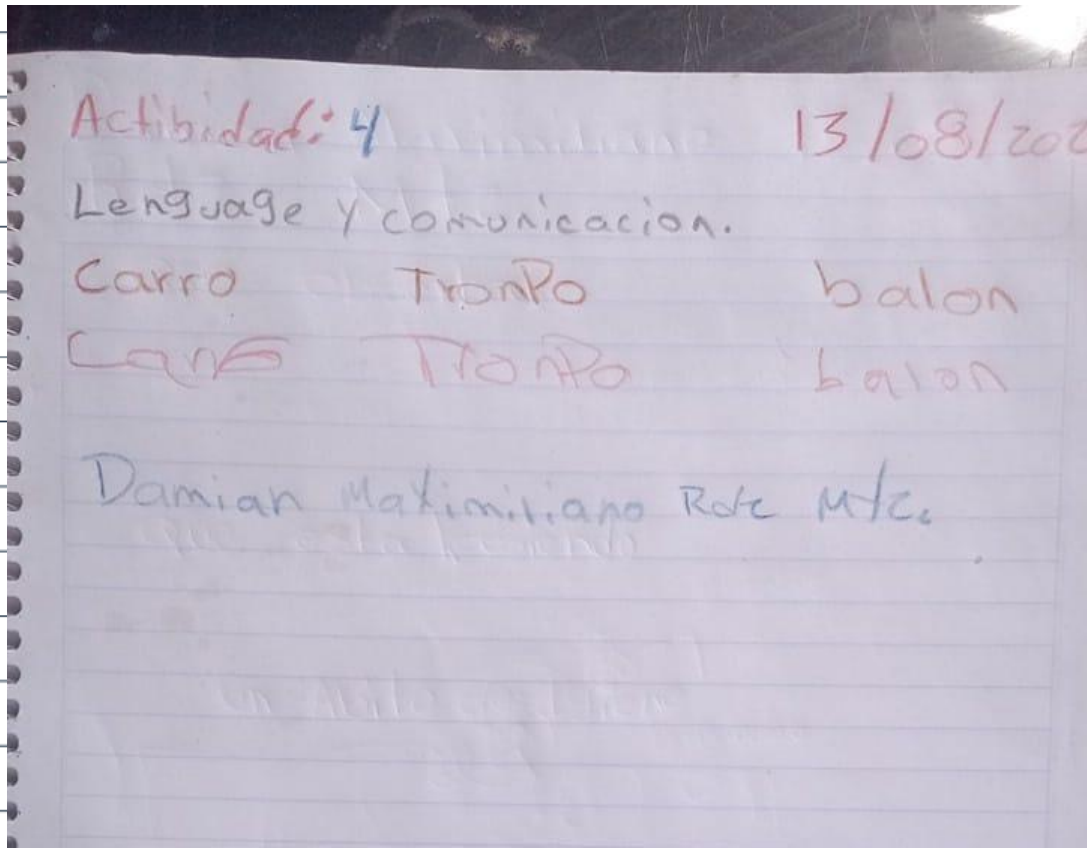 Actibidad: 4 13/08/202
Lenguage y comunicacion.
Carro TronPo balon
TronPo balon
Damian Maximiliano